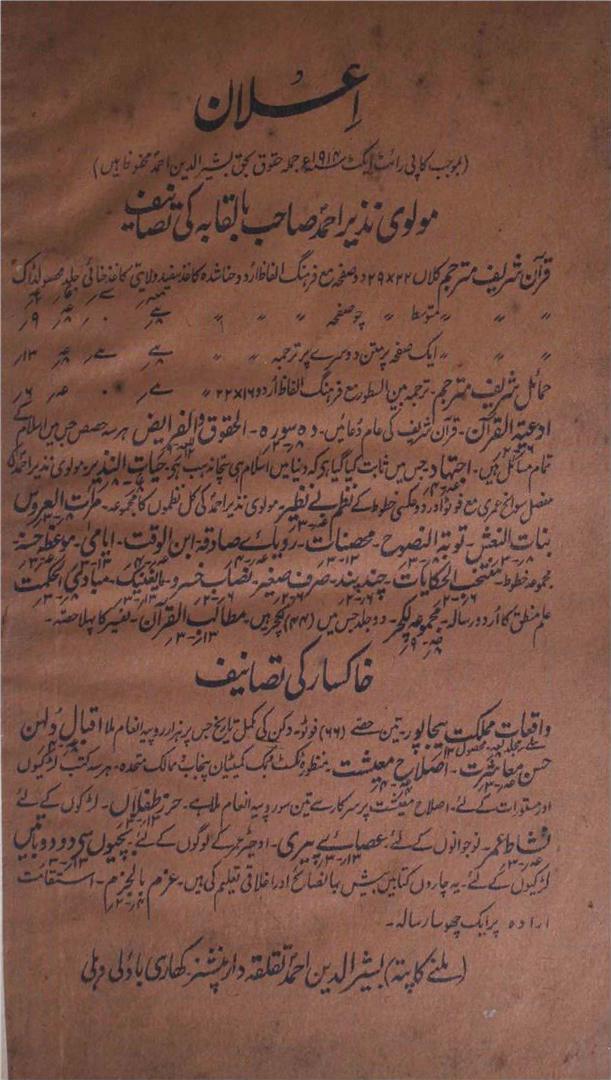 اعلان
(بموجب کاپی رائٹ ایکٹ ۱۹۱۴ء جملہ حقوق بحق بشیر الدین احمد محفوظ ہیں)
مولوی نذیر احمد صاحب بالقابہ کی تصانیف
قرآن شریف مترجم کلاں ۲۲×۲۹ دو صفحہ مع فرہنگ الفاظ اردو حنا شدہ کاغذ سفید ولایتی کاغذ حنائی جلد محصول ڈاک
〃 〃 〃 متوسط 〃 چو صفحہ 〃 〃 〃
〃 〃 〃 ایک صفحہ پر متن دوسرے پر ترجمہ 〃 〃
حمائل شریف مترجم۔ ترجمہ بین السطور مع فرہنگ الفاظ اردو ۱۶×۲۲ 〃
ادعیۃ القرآن۔ قرآن شریف کی عام دعائیں۔ دہ سورہ۔ الحقوق والفرایض ہر سہ حصص جس میں اسلام کے
تمام مسائل ہیں۔ اجتہاد جس میں ثابت کیا گیا ہے کہ دنیا میں اسلام ہی سچا مذہب ہے۔ حیات النذیر۔ مولوی نذیر احمد کی
مفصل سوانح عمری مع فوٹو اور دو عکسی خطوط کے نظم بے نظیر۔ مولوی نذیر احمد کی کل نظموں کا مجموعہ۔ مرات العروس
بنات النعش۔ توبۃ النصوح۔ محصنات۔ رویائے صادقہ۔ ابن الوقت۔ ایامیٰ۔ موعظہ حسنہ
مجموعہ خطوط۔ منتخب الحکایات۔ چند پند۔ صرف صغیر۔ نصاب خسرو۔ مایغنیک۔ مبادی الحکمت
علم منطق کا اردو رسالہ۔ مجموعہ لیکچر۔ دو جلد جس میں (۴۴) لیکچر ہیں۔ مطالب القرآن۔ تفسیر کا پہلا حصہ۔
خاکسار کی تصانیف
واقعات مملکت بیجاپور۔ تین حصے (۶۶) فوٹو۔ دکن کی مکمل تاریخ جس پر ہزار روپیہ انعام ملا اقبال دلہن
حسن معاشرت۔ اصلاح معیشت۔ منظورہ ٹکسٹ بک کمیٹیان پنجاب و ممالک متحدہ۔ ہر سہ کتب لڑکیوں
اور مستورات کے لئے۔ اصلاح معیشت پر سرکار سے تین سو روپیہ انعام ملا ہے۔ حرز طفلاں۔ لڑکوں کے لئے
نشاط عمر۔ نوجوانوں کے لئے۔ عصائے پیری۔ اودھیڑ عمر کے لوگوں کے لئے۔ بچیوں سی دو دو باتیں
لڑکیوں کے لئے۔ یہ چاروں کتابیں بیش بہا نصائح اور اخلاقی تعلیم کی ہیں۔ عزم بالجزم۔ استقامت
ارادہ پر ایک چھوٹا سا رسالہ۔
(ملنے کا پتہ) بشیر الدین احمد تعلقہ دار پنشنر کھاری باولی دہلی